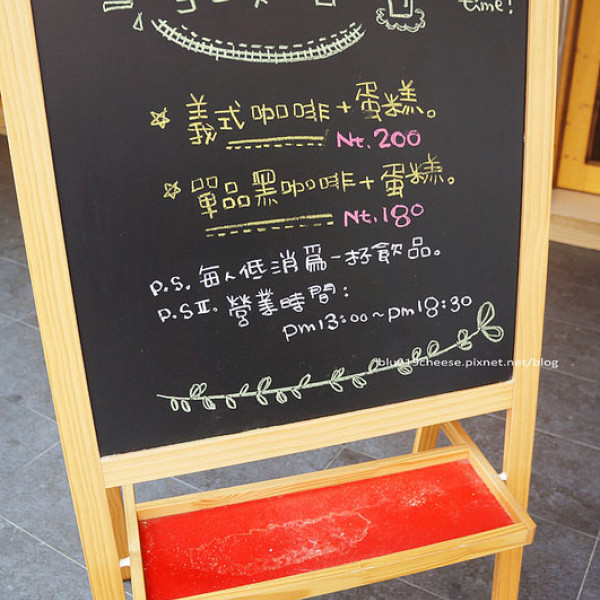 time!
☆ 義式咖啡+蛋糕。
Nt.200
☆ 單品黑咖啡+蛋糕。
Nt.180
p.s. 每人低消爲一杯飲品。
p.s II. 營業時間:
pm13:00~pm18:30
blu019cheese.pixnet.net/blog